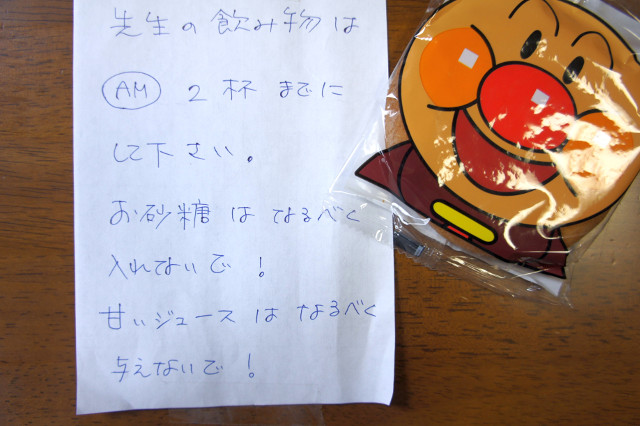 先生の飲み物は
AM 2杯までに
して下さい。
お砂糖はなるべく
入れないで!
甘いジュースはなるべく
与えないで!